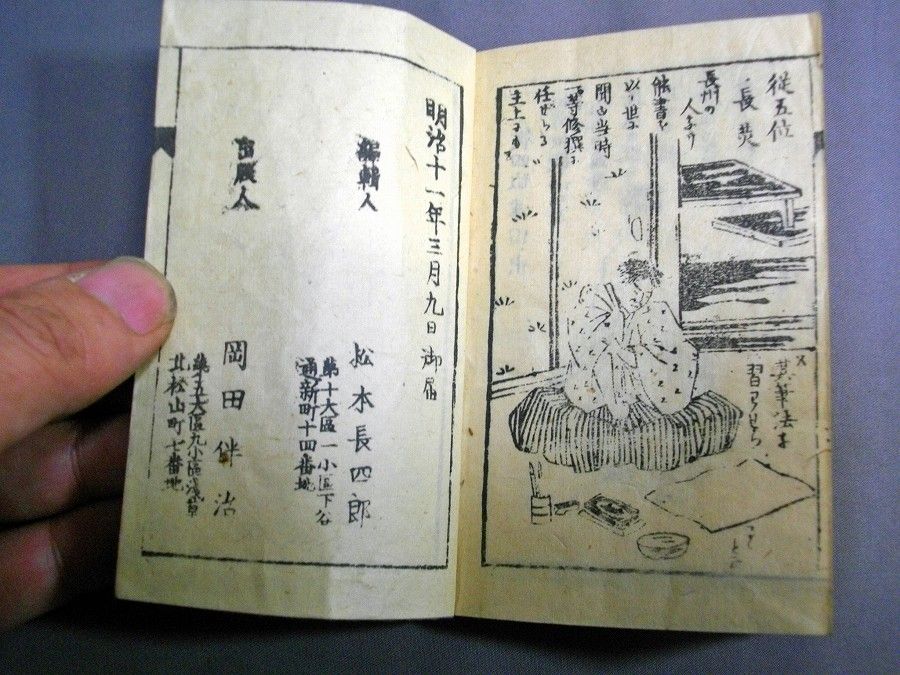 從五位
長炗
長州の
人なり
能書を
以て世に
聞ゆ当時
一等修撰に
任ぜらる
主上
其筆法を
明治十一年三月九日御届
編輯人
松本長四郎
第十大區一小區下谷
通新町十四番地
出版人
岡田伴治
第五大區九小區浅草
北松山町七番地